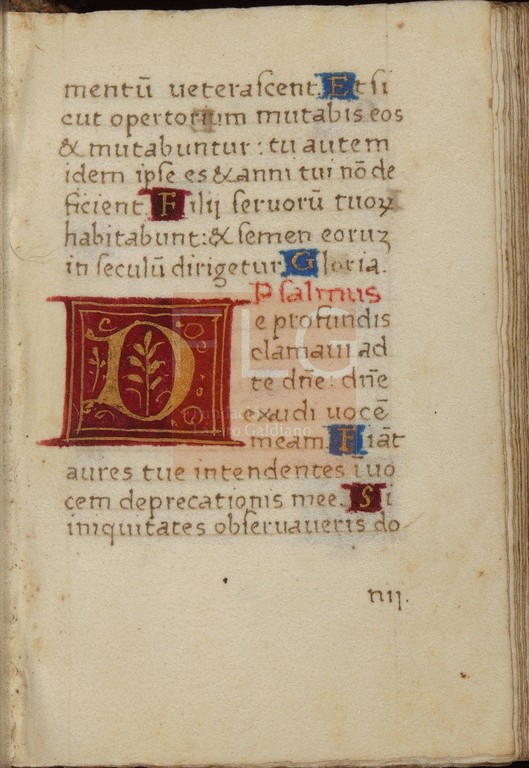 mentū ueterascent. Et si
cut opertorium mutabis eos
& mutabuntur: tu autem
idem ipse es & anni tui nō de
ficient. Filij seruorū tuoꝝ
habitabunt: & semen eoruz
in seculū dirigetur. Gloria.
Psalmus
De profundis
clamaui ad
te dn̄e: dn̄e
exaudi uocē
meam. Fiāt
aures tue intendentes ī uo
cem deprecationis mee. Si
iniquitates obseruaueris do
nij.
FLG
Galdiano